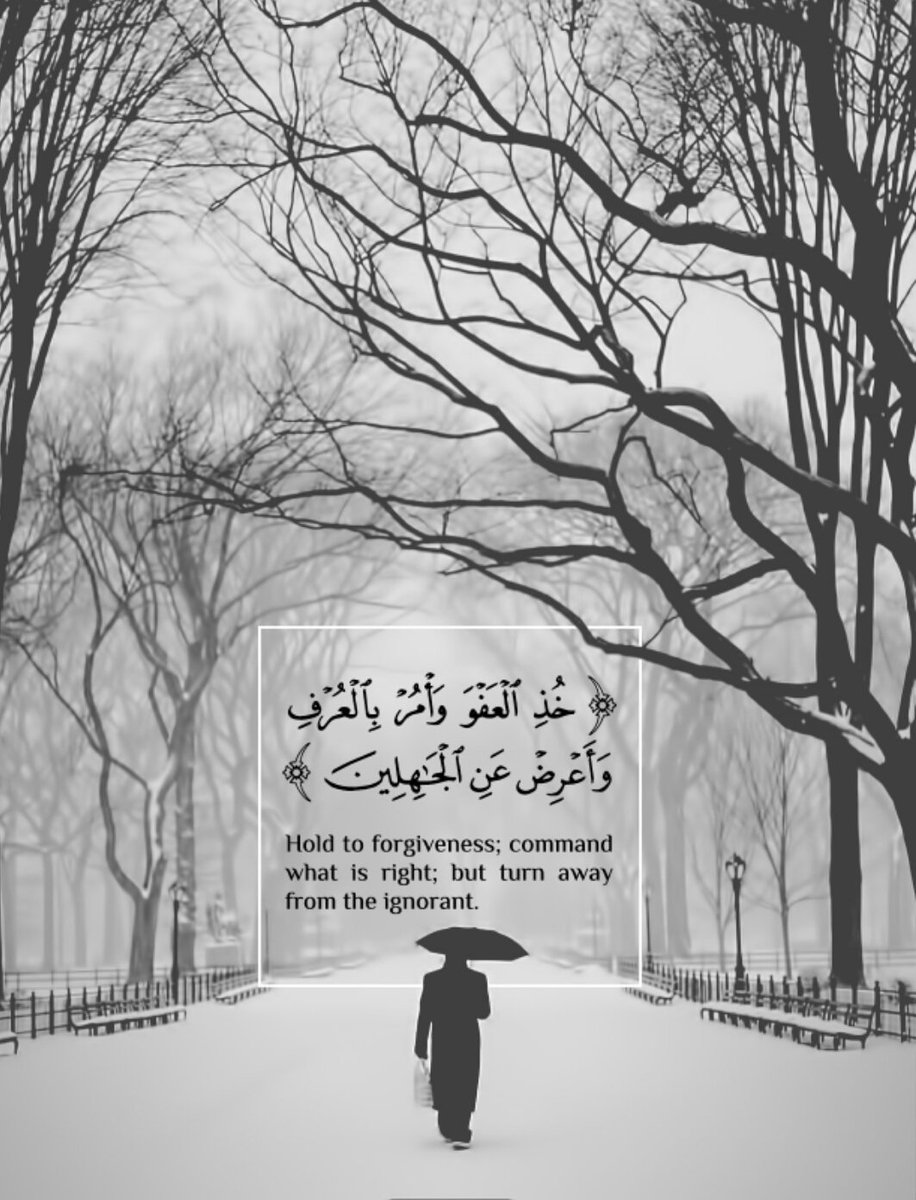 ﴿ خُذِ ٱلْعَفْوَ وَأْمُرْ بِٱلْعُرْفِ
وَأَعْرِضْ عَنِ ٱلْجَـٰهِلِينَ ﴾
Hold to forgiveness; command
what is right; but turn away
from the ignorant.